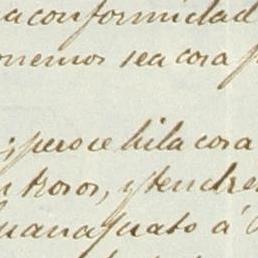 a conformidad
nemos sea cosa
; pero se hila cosa
n trozos, y tendre
uanajuato á